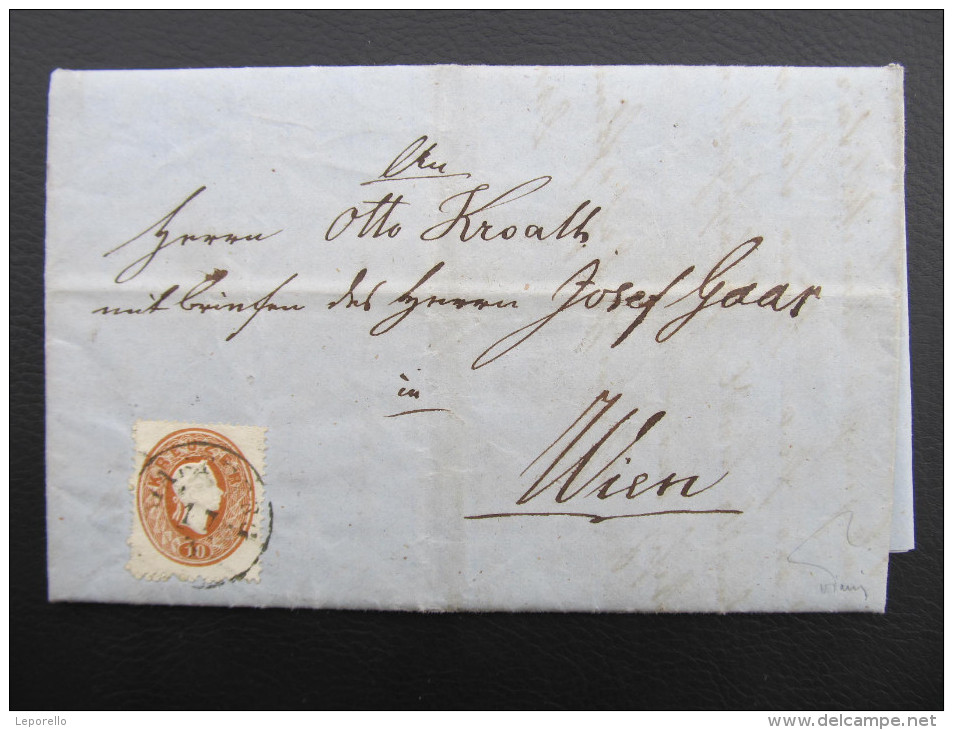 An
Herrn Otto Kroath
mit Briefen des Herrn Josef Gaar
in
Wien
KREUZER
10
Leporello
www.delcampe.net